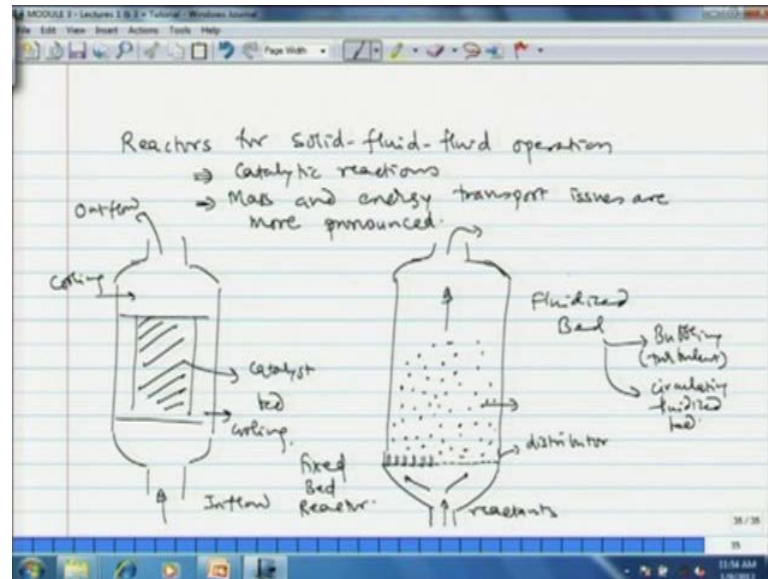 MODULE 3 - Lectures 1 & 2 + Tutorial - Windows Journal
File Edit View Insert Actions Tools Help
Page Width
Reactors for solid-fluid-fluid operation
⇒ Catalytic reactions
→ Mass and energy transport issues are
more pronounced.
Outflow
Cooling
Catalyst
bed
Cooling
Inflow
Fixed
Bed
Reactor
Fluidized
Bed
Bubbling
(turbulent)
Circulating
fluidized
bed
distributor
reactants
35
11:54 AM